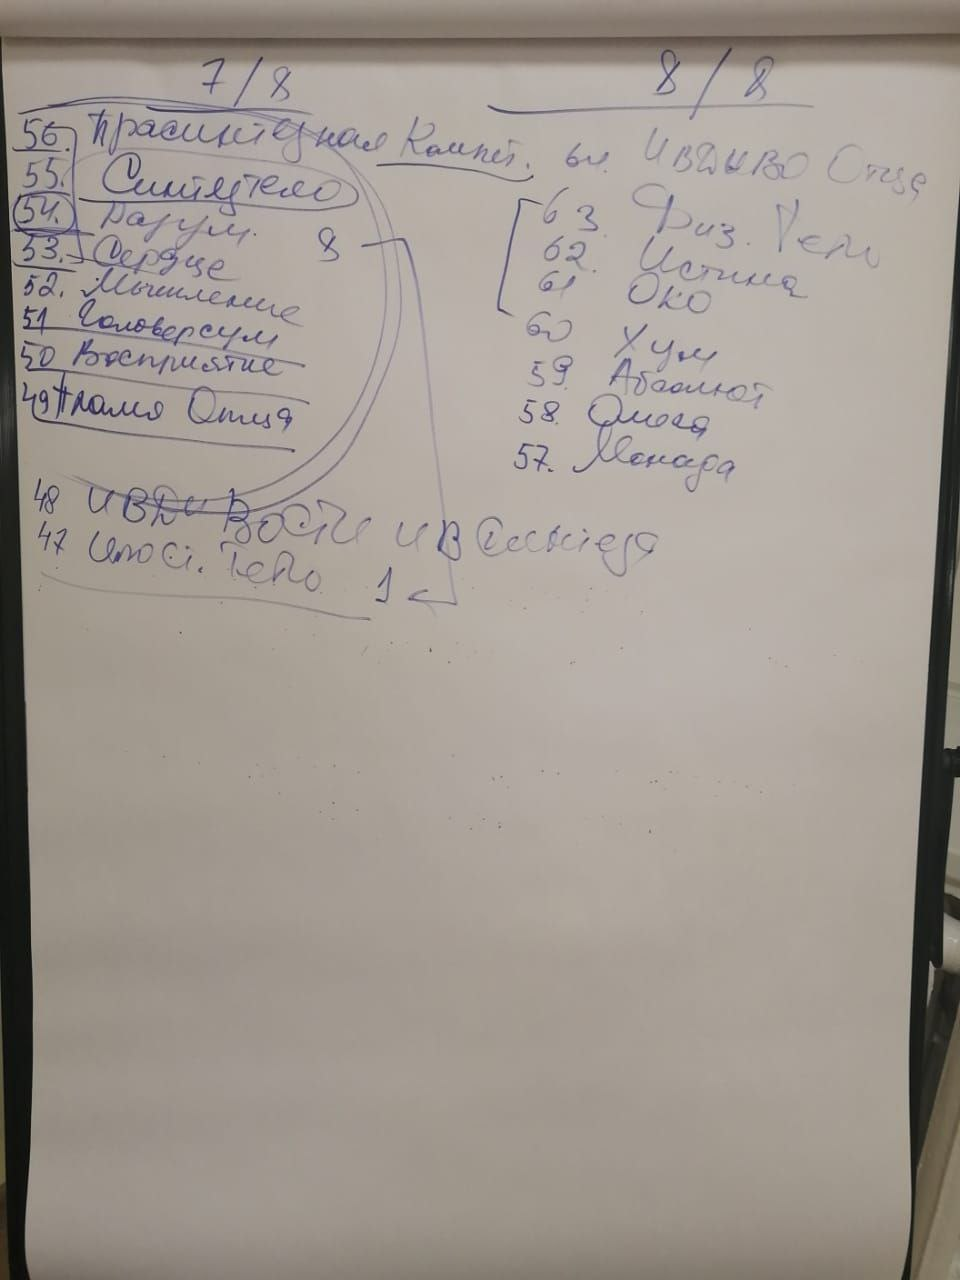 7/8
56. Прасинтезная Компет.
55. Синтезтело
54. Разум.
53. Сердце
8
52. Мышление
51 Головерсум
50 Восприятие
49 Пламя Отца
48 ИВДИВО ИВ
47 Ипост. Тело 1
8/8
64. ИВДИВО Отца
63. Физ. Тело
62. Истина
61 Око
60 Хум
59. Абсолют
58. Омега
57. Монада